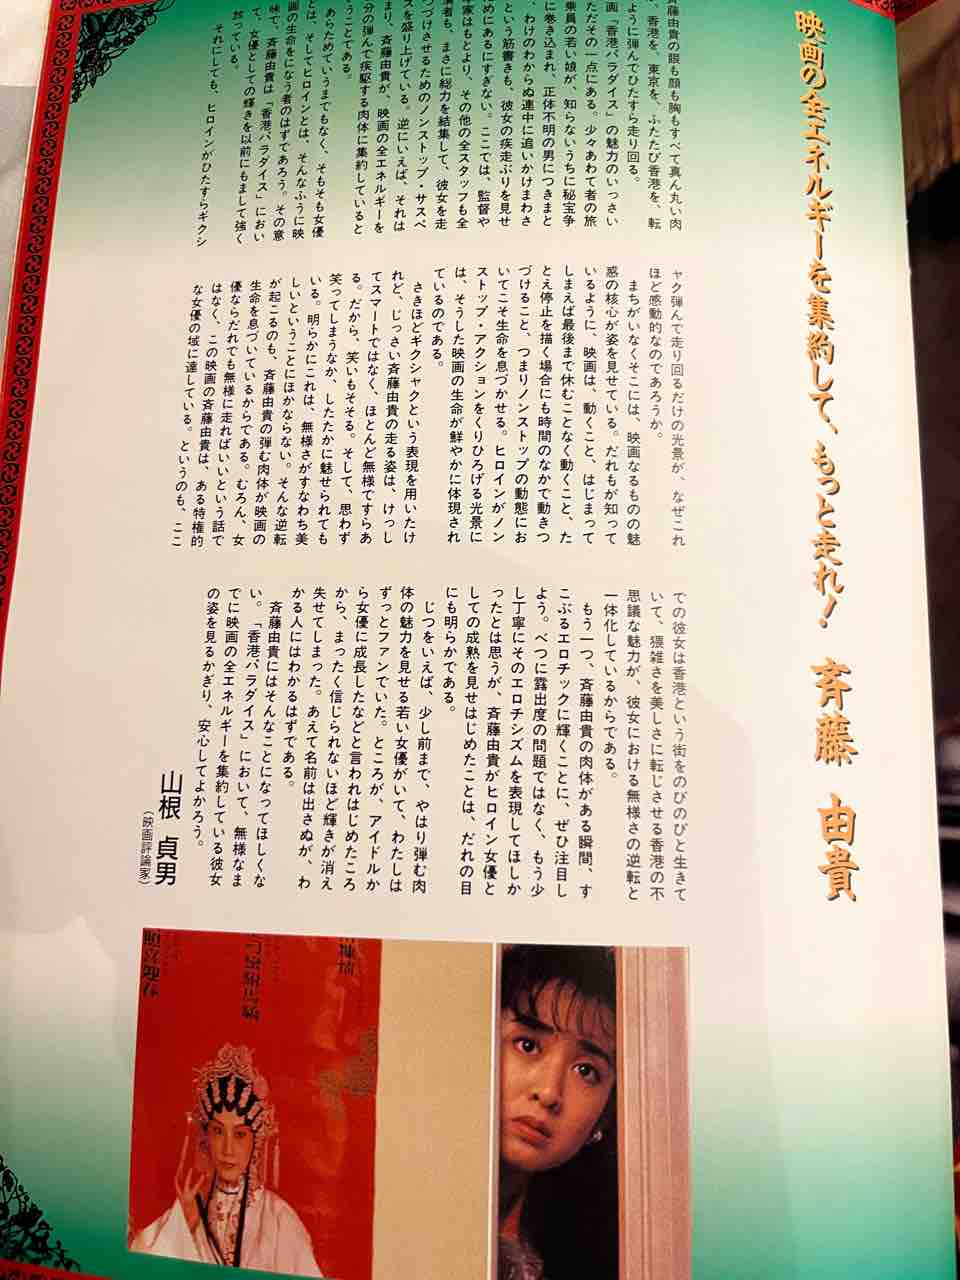 映画の全エネルギーを集約して、もっと走れ! 斉藤 由貴
斉藤由貴の眼も顔も胸もすべて真ん丸い肉
ように弾んでひたすら走り回る。
香港を、東京を、ふたたび香港を、転
画『香港パラダイス』の魅力のいっさい
ただその一点にある。少々あわて者の旅
乗員の若い娘が、知らないうちに秘宝争
に巻き込まれ、正体不明の男につきまと
、わけのわからぬ連中に追いかけまわさ
という筋書きも、彼女の疾走ぶりを見せ
めにあるにすぎない。ここでは、監督や
家はもとより、その他の全スタッフも全
演者も、まさに総力を結集して、彼女を走
つづけさせるためのノンストップ・サスペ
スを盛り上げている。逆にいえば、それは
まり、斉藤由貴が、映画の全エネルギーを
分の弾んで疾駆する肉体に集約していると
うことである。
あらためていうまでもなく、そもそも女優
とは、そしてヒロインとは、そんなふうに映
画の生命をになう者のはずであろう。その意
味で、斉藤由貴は『香港パラダイス』におい
て、女優としての輝きを以前にもまして強く
放っている。
それにしても、ヒロインがひたすらギクシ
ャク弾んで走り回るだけの光景が、なぜこれ
ほど感動的なのであろうか。
まちがいなくそこには、映画なるものの魅
惑の核心が姿を見せている。だれもが知って
いるように、映画は、動くこと、はじまって
しまえば最後まで休むことなく動くこと、た
とえ停止を描く場合にも時間のなかで動きつ
づけること、つまりノンストップの動態にお
いてこそ生命を息づかせる。ヒロインがノン
ストップ・アクションをくりひろげる光景に
は、そうした映画の生命が鮮やかに体現され
ているのである。
さきほどギクシャクという表現を用いたけ
れど、じっさい斉藤由貴の走る姿は、けっし
てスマートではなく、ほとんど無様ですらあ
る。だから、笑いもそそる。そして、思わず
笑ってしまうなか、したたかに魅せられても
いる。明らかにこれは、無様さがすなわち美
しいということにほかならない。そんな逆転
が起こるのも、斉藤由貴の弾む肉体が映画の
生命を息づいているからである。むろん、女
優ならだれでも無様に走ればいいという話で
はなく、この映画の斉藤由貴は、ある特権的
な女優の域に達している。というのも、ここ
での彼女は香港という街をのびのびと生きて
いて、猥雑さを美しさに転じさせる香港の不
思議な魅力が、彼女における無様さの逆転と
一体化しているからである。
もう一つ、斉藤由貴の肉体がある瞬間、す
こぶるエロチックに輝くことに、ぜひ注目し
よう。べつに露出度の問題ではなく、もう少
し丁寧にそのエロチシズムを表現してほしか
ったとは思うが、斉藤由貴がヒロイン女優と
しての成熟を見せはじめたことは、だれの目
にも明らかである。
じつをいえば、少し前まで、やはり弾む肉
体の魅力を見せる若い女優がいて、わたしは
ずっとファンでいた。ところが、アイドルか
ら女優に成長したなどと言われはじめたころ
から、まったく信じられないほど輝きが消え
失せてしまった。あえて名前は出さぬが、わ
かる人にはわかるはずである。
斉藤由貴にはそんなことになってほしくな
い。『香港パラダイス』において、無様なま
でに映画の全エネルギーを集約している彼女
の姿を見るかぎり、安心してよかろう。
山根 貞男
(映画評論家)